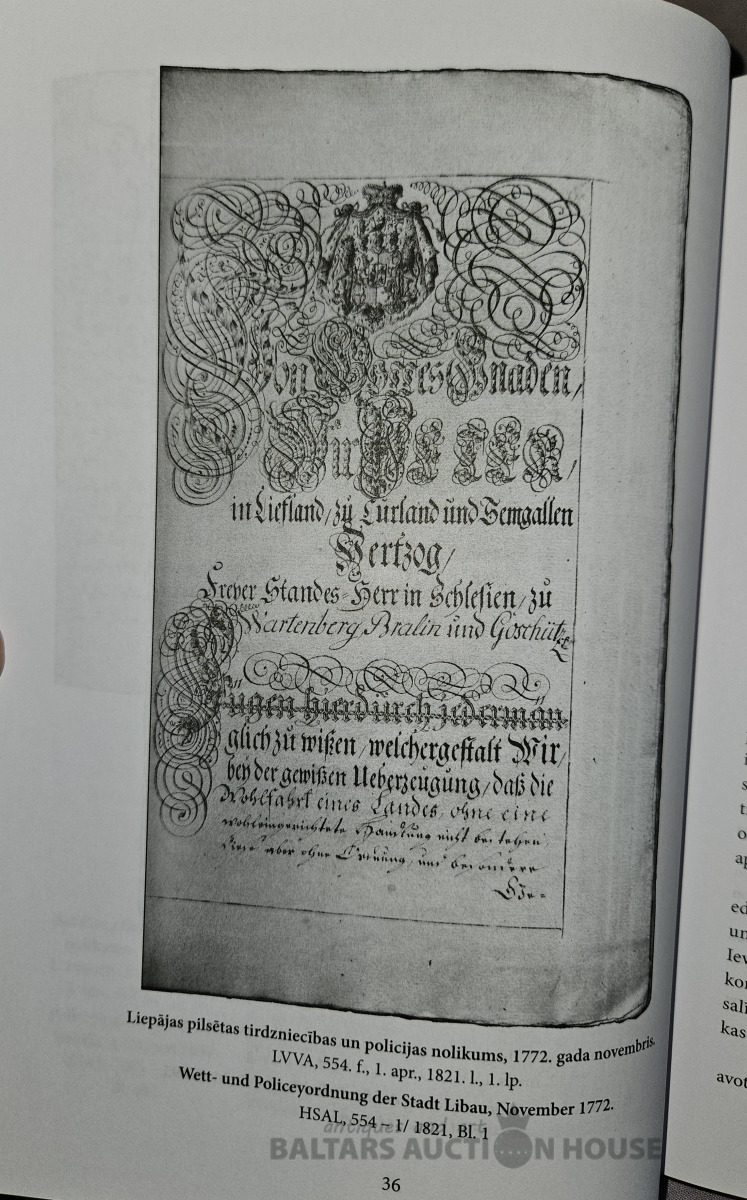 Von Gottes Gnaden,
Wir PETER,
in Liefland, zu Curland und Semgallen
Hertzog,
Freyer Standes-Herr in Schlesien, zu
Wartenberg, Bralin und Goschütz
Fügen hierdurch jederman-
glich zu wißen, welchergestalt Wir,
bey der gewißen Ueberzeugung, daß die
Wohlfahrt eines Landes, ohne eine
wohleingerichtete Handlung nicht bestehen,
diese aber ohne Ordnung, und besondere
Ge-
Liepājas pilsētas tirdzniecības un policijas nolikums, 1772. gada novembris.
LVVA, 554. f., 1. apr., 1821. l., 1. lp.
Wett- und Policeyordnung der Stadt Libau, November 1772.
HSAL, 554 – 1/ 1821, Bl. 1
BALTARS AUCTION HOUSE
36
ed
un
Iev
kor
salī
kas
avot